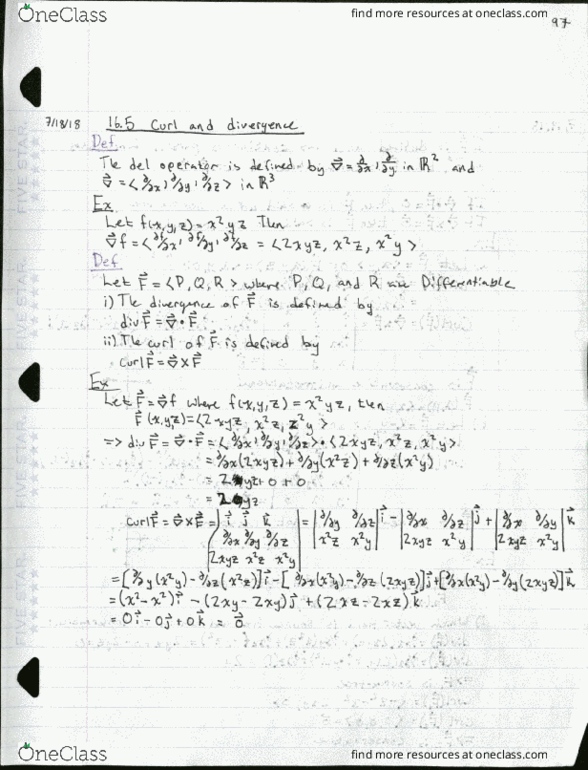 OneClass
find more resources at oneclass.com
97
7/18/18 16.5 Curl and divergence
Def
The del operator is defined by ∇⃗ = ∂/∂x, ∂/∂y in ℝ² and
∇⃗ = <∂/∂x, ∂/∂y, ∂/∂z> in ℝ³
Ex
Let f(x,y,z) = x²yz Then
∇⃗f = <∂f/∂x, ∂f/∂y, ∂f/∂z = <2xyz, x²z, x²y>
Def
Let F⃗ = <P, Q, R> where P, Q, and R are Differentiable
i) The divergence of F⃗ is defined by
div F⃗ = ∇⃗ • F⃗
ii) The curl of F⃗ is defined by
curl F⃗ = ∇⃗ × F⃗
Ex
Let F⃗ = ∇⃗f where f(x,y,z) = x²yz, then
F⃗(x,yz) = <2xyz, x²z, x²y>
=> div F⃗ = ∇⃗ • F⃗ = <∂/∂x, ∂/∂y, ∂/∂z> • <2xyz, x²z, x²y>
= ∂/∂x(2xyz) + ∂/∂y(x²z) + ∂/∂z(x²y)
= 2yz + 0 + 0
= 2yz
curl F⃗ = ∇⃗ × F⃗ = | i⃗ j⃗ k⃗ | = | ∂/∂y ∂/∂z | i⃗ - | ∂/∂x ∂/∂z | j⃗ + | ∂/∂x ∂/∂y | k⃗
| ∂/∂x ∂/∂y ∂/∂z | | x²z x²y | | 2xyz x²y | | 2xyz x²y |
| 2xyz x²z x²y |
= [∂/∂y(x²y) - ∂/∂z(x²z)] i⃗ - [∂/∂x(x²y) - ∂/∂z(2xyz)] j⃗ + [∂/∂x(x²y) - ∂/∂y(2xyz)] k⃗
= (x² - x²) i⃗ - (2xy - 2xy) j⃗ + (2xz - 2xz) k⃗
= 0i⃗ - 0j⃗ + 0k⃗ = 0⃗
OneClass
find more resources at oneclass.com